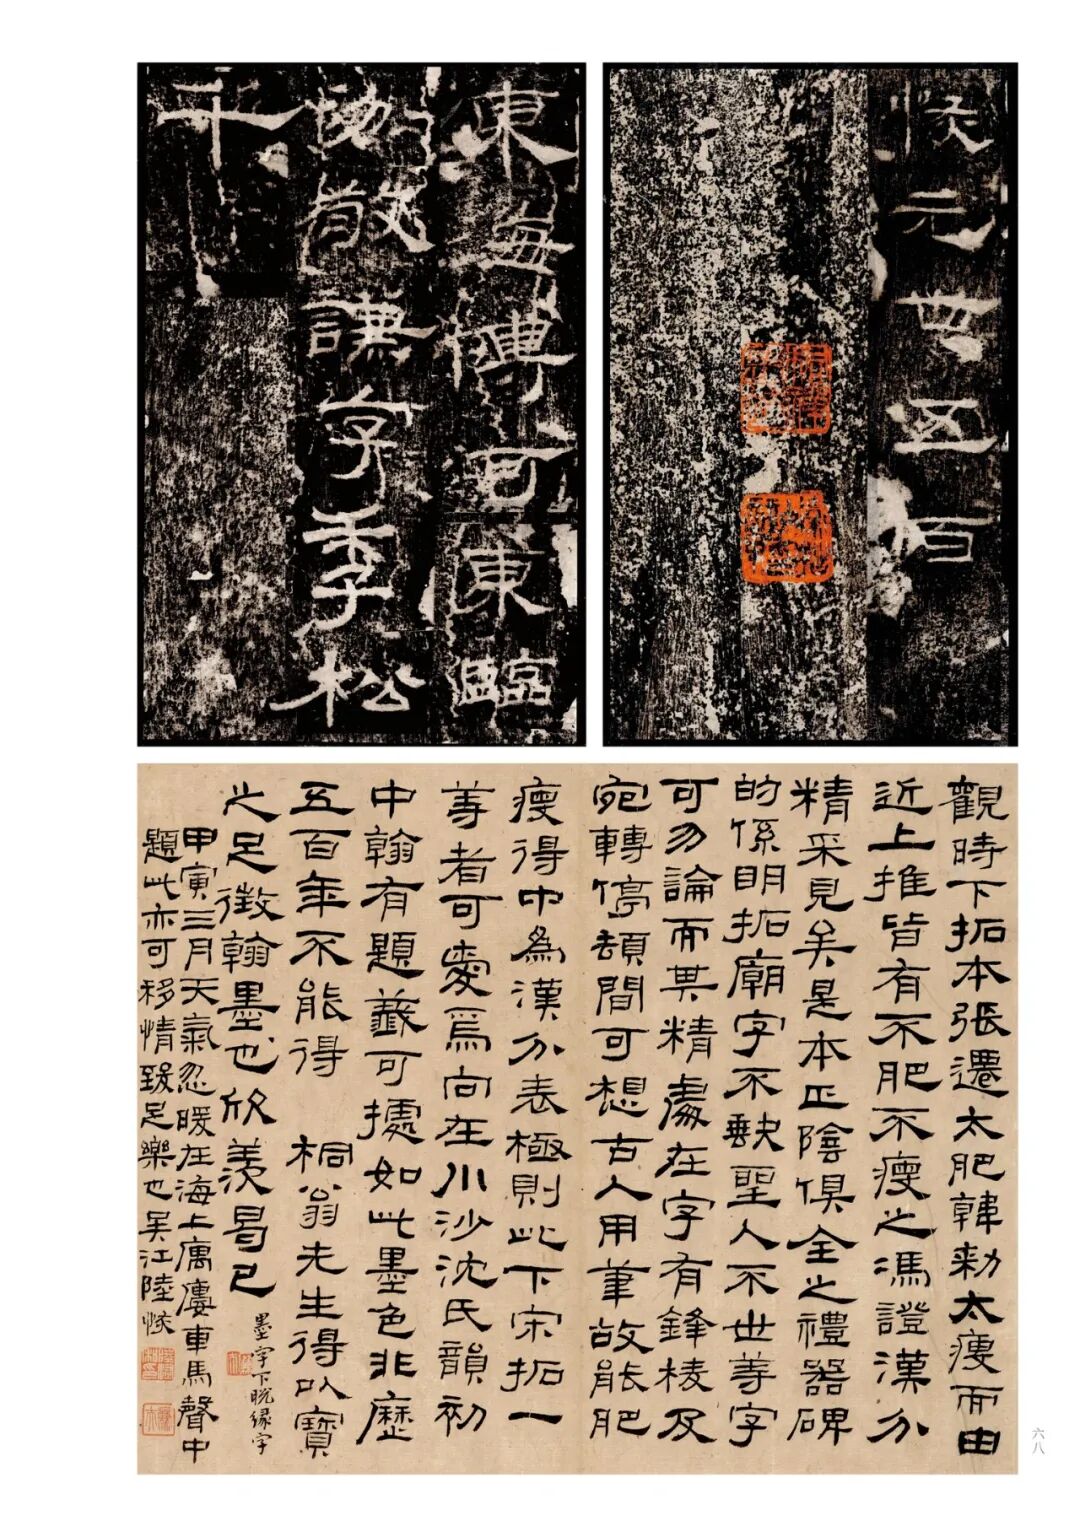 侯元世五百
東海傅河東臨
汾敬謙字季松
千
觀時下拓本張遷太肥韓勑太瘦而由
近上推皆有不肥不瘦之馮證漢分
精采見矣是本正陰俱全之禮器碑
的係明拓廟字不缺聖人不世等字
可勿論而其精處在字有鋒棱及
宛轉停頓間可想古人用筆故能肥
瘦得中為漢分表極則此下宋拓一
等者可愛焉向在川沙沈氏韻初
中翰有題籤可據如此墨色非歷
五百年不能得 桐翁先生得以寶
之足徵翰墨也欣羨曷已
墨字下脫緣字
甲寅三月天氣忽暖在海上寓廔車馬聲中
題此亦可移情致足樂也吳江陸恢
六八